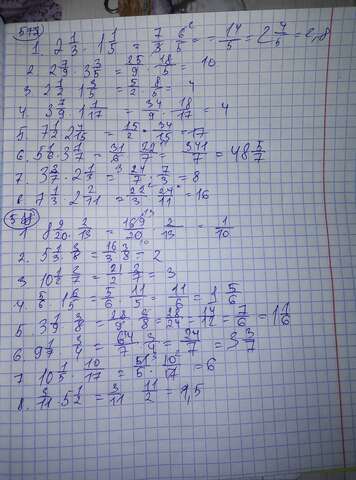 577
1. 2 1/3 · 1 1/5 = 7/3 · 6/5 = 14/5 = 2 4/5 = 2,8
2. 2 7/9 · 3 3/5 = 25/9 · 18/5 = 10
3. 2 1/2 · 1 3/5 = 5/2 · 8/5 = 4
4. 3 7/9 · 1 1/17 = 34/9 · 18/17 = 4
5. 7 1/2 · 2 4/15 = 15/2 · 34/15 = 17
6. 5 1/6 · 3 1/7 = 31/6 · 22/7 = 341/7 = 48 5/7
7. 3 3/7 · 2 1/3 = 24/7 · 7/3 = 8
8. 7 1/3 · 2 2/11 = 22/3 · 24/11 = 16
1. 8 9/20 · 2/13 = 169/20 · 2/13 = 1/10
2. 5 1/3 · 3/8 = 16/3 · 3/8 = 2
3. 10 1/2 · 2/7 = 21/2 · 2/7 = 3
4. 5/6 · 1 6/5 = 5/6 · 11/5 = 11/6 = 1 5/6
5. 3 1/9 · 3/8 = 28/9 · 3/8 = 28/24 = 14/12 = 7/6 = 1 1/6
6. 9 1/7 · 3/4 = 64/7 · 3/4 = 24/7 = 3 3/7
7. 10 1/5 · 10/17 = 51/5 · 10/17 = 6
8. 3/11 · 5 1/2 = 3/11 · 11/2 = 1,5